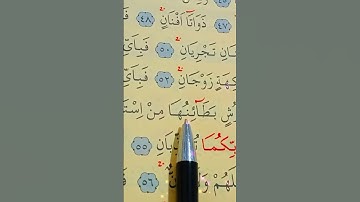 ٤٧ ذَوَاتَآ أَفْنَانٍ ٤٨
ـانِ تَجْرِيَانِ ٥٠ فَبِأَيِّ
ـكِهَةٍ زَوْجَانِ ٥٢ فَبِأَيِّ
ـرُشٍ بَطَآئِنُهَا مِنْ إِسْتَـ
ـبِّكُمَا تُكَذِّبَانِ ٥٥
ـلَهُمْ ٥٦